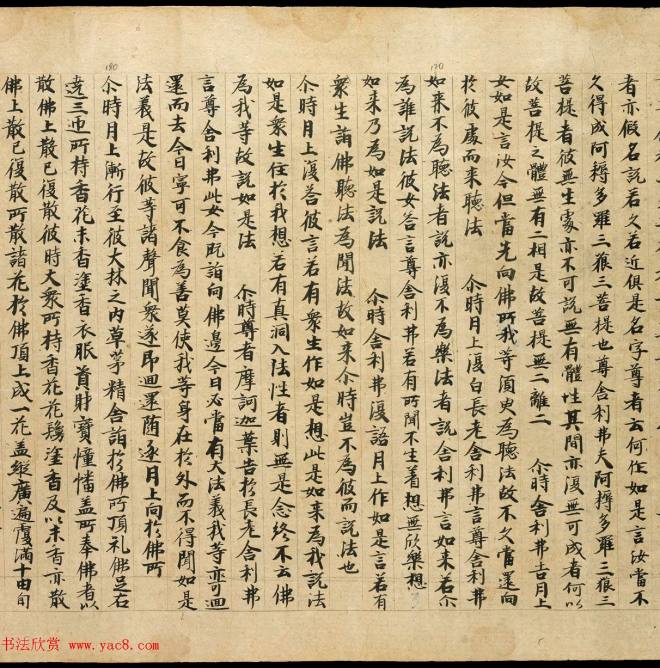 者亦假名說若久若近俱是名字尊者云何作如是言汝當不
久得成阿耨多羅三藐三菩提也尊舍利弗夫阿耨多羅三藐三
菩提者彼無生處亦不可說無有體性其間亦復無可成者何以
故菩提之體無有二相是故菩提無二離二 尒時舍利弗告月上
女如是言汝今但當先向佛所我等須臾為聽法故不久當還向
於彼處而來聽法 尒時月上復白長老舍利弗言尊舍利弗
如來不為聽法者說亦復不為樂法者說舍利弗言如來若尒
為誰說法彼女答言尊舍利弗若有所聞不生着想無欣樂想
如來乃為如是說法 尒時舍利弗復語月上作如是言若有
衆生詣佛聽法為聞法故如來尒時豈不為彼而說法也
尒時月上復荅彼言若有衆生作如是想此是如來為我說法
如是衆生住於我想若有真洞入法性者則無是念終不云佛
為我等故說如是法 尒時尊者摩訶迦葉告於長老舍利弗
言尊舍利弗此女今既詣向佛邊今日必當有大法義我等亦可迴
還而去今日寧可不食為善莫使我等身在於外而不得聞如是
法義是故彼等諸聲聞衆遂即迴還随逐月上向於佛所
尒時月上漸行至彼大林之内草茅精舍詣於佛所頂礼佛足右
遶三迊所持香花末香塗香衣服首財寶憧幡盖所奉佛者以
散佛上散已復散彼時大衆所持香花花鬘塗香及以末香亦散
佛上散已復散所散諸花於佛頂上成一花盖縱廣遍覆滿十由旬
170
180
书法欣赏 www.yac8.com